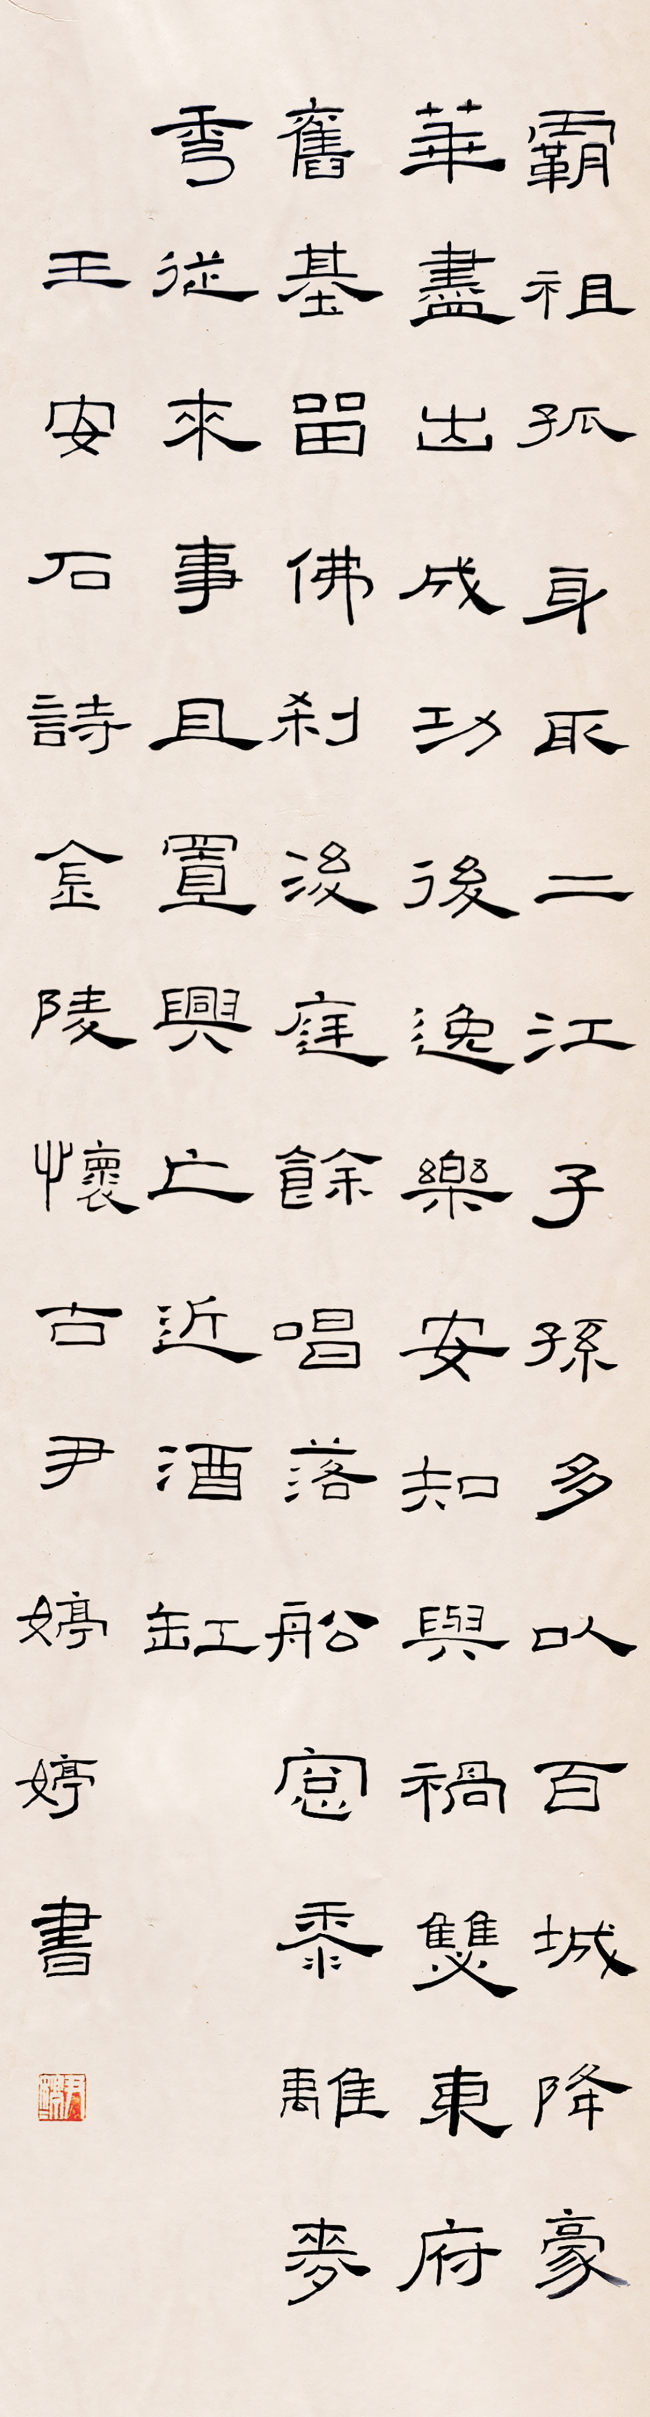 霸祖孤身取二江子孫多以百城降豪
華盡出成功後逸樂安知與禍雙東府
舊基留佛刹後庭餘唱落船窓黍離麥
秀從來事且置興亡近酒缸
王安石詩金陵懷古尹婷婷書